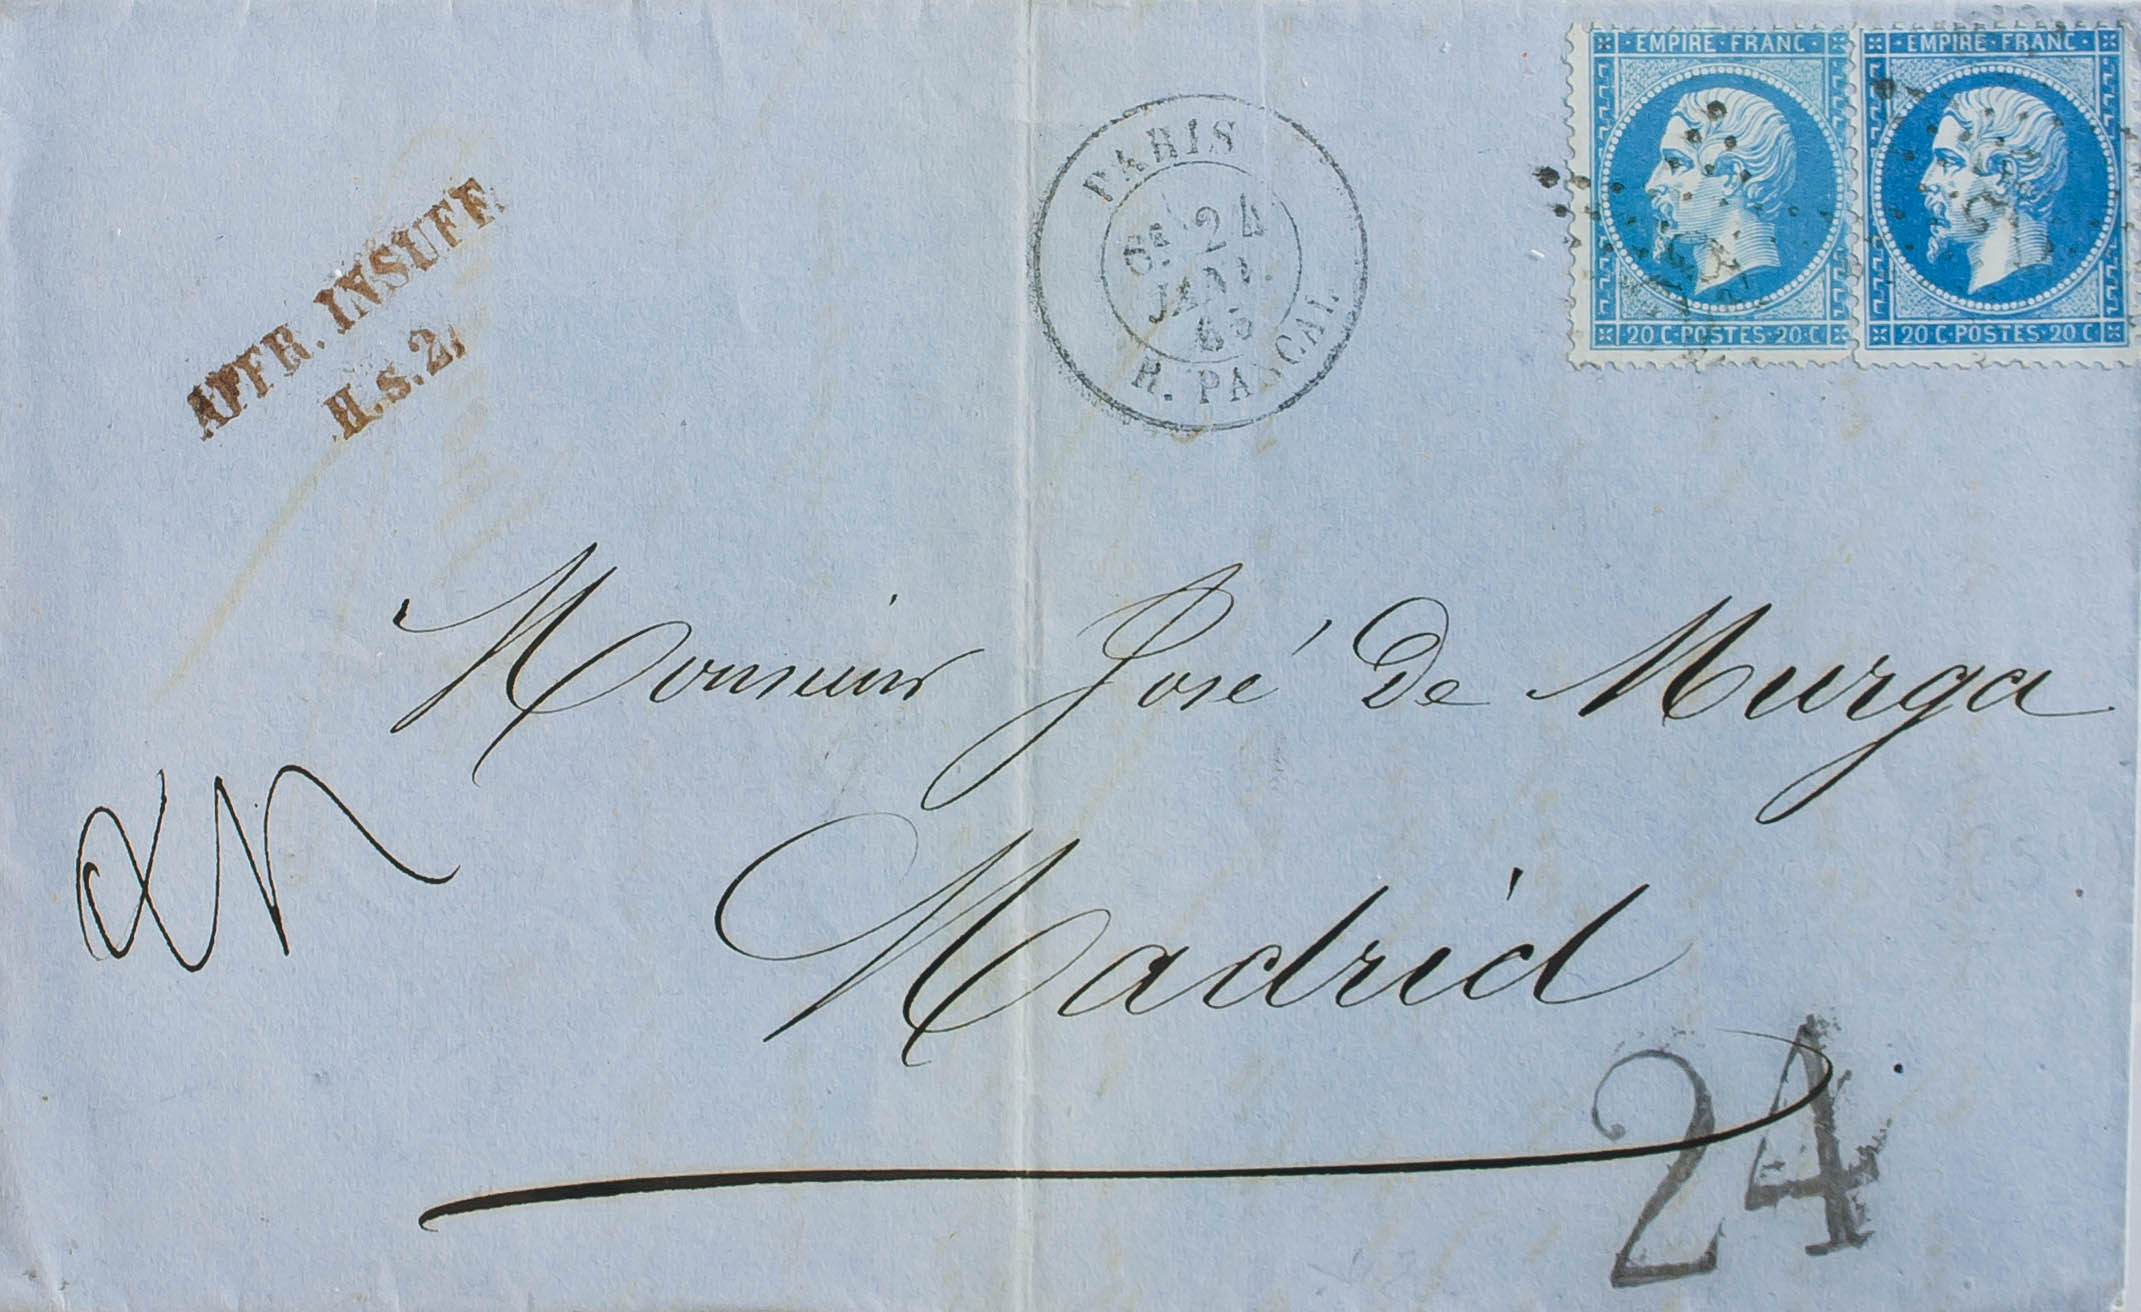 EMPIRE·FRANC· EMPIRE·FRANC·
20·C·POSTES·20·C 20·C·POSTES·20·C
PARIS
24
JANV.
65
R. PASCAL
AFFR. INSUFF.
H.S.2,
Monsieur José De Murga
Madrid
24